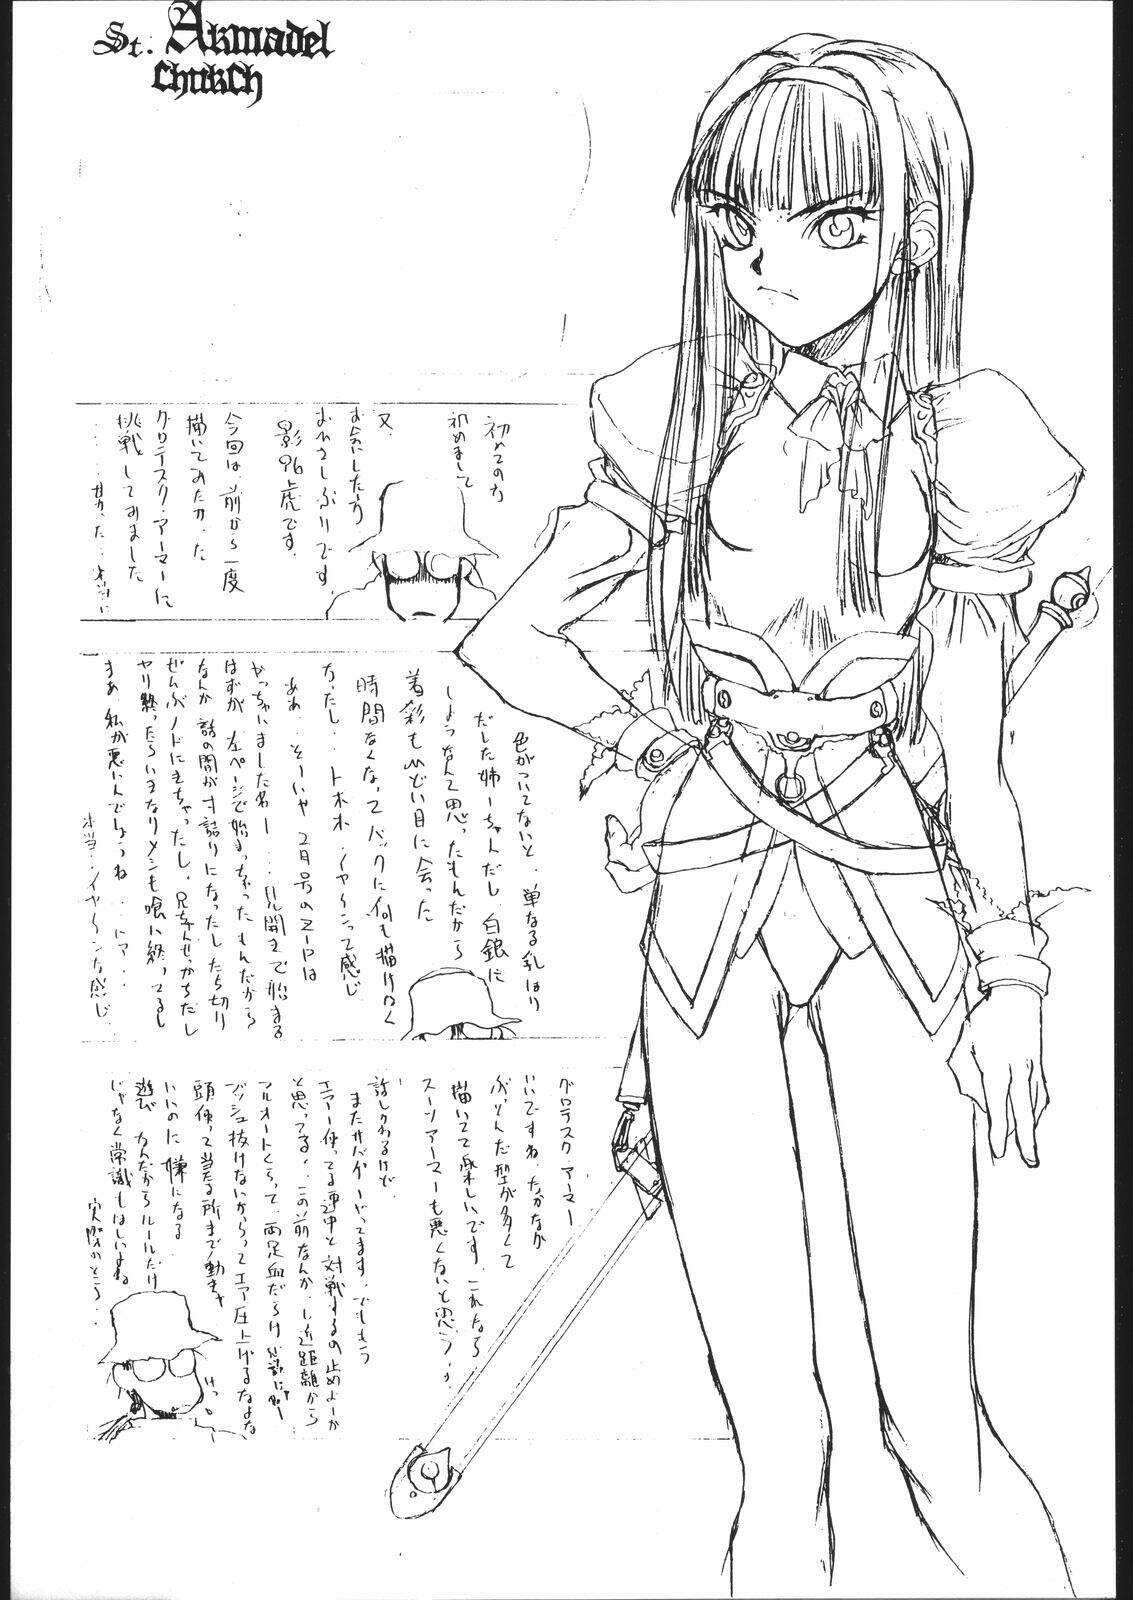 St. Armadel
Church
初めての方
初めまして
又、
お会いした方
おひさしぶりです。
影96虎です。
今回は、前から一度
描いてみたかった
グロテスク・アーマーに
挑戦してみました
色がついてないと、単なる乳はり
だした姉ーちゃんだし、白銀に
しようなんて思ったもんだから
着彩もひどい目に会った
時間なくなってバックに何も描けなく
なったし...トホホ・イヤ〜ンって感じ
ああ、そーいや2月号の
やっちゃいました
はずが、左ページで始まっちゃったもんだから
なんか 話の間が寸詰りになったしたち切り
ぜんぶノドにきちゃったし、
ヤリ終ったらいきなりメシも喰い終ってるし
まあ、私が悪いんでしょうね
本当...イヤ〜ンな感じ...
グロテスク・アーマー
いいですね、なかなか
ぶっとんだ型が多くて
描いてて楽しいです。これなら
スーツアーマーも悪くないと思う
話しかわるけど、
またサバゲーやってます。でももう
エアー使ってる連中と対戦するの止めよーか
と思ってる...この前なんか、し近距離から
フルオートくらって、両足血だらけ
ブッシュ抜けないからってエア圧上げるなよな
頭使って当たる所まで動きゃ
いいのに 嫌になる
遊びなんだからルールだけ
じゃなく常識もほしいよね
実際のところ...
けっ。